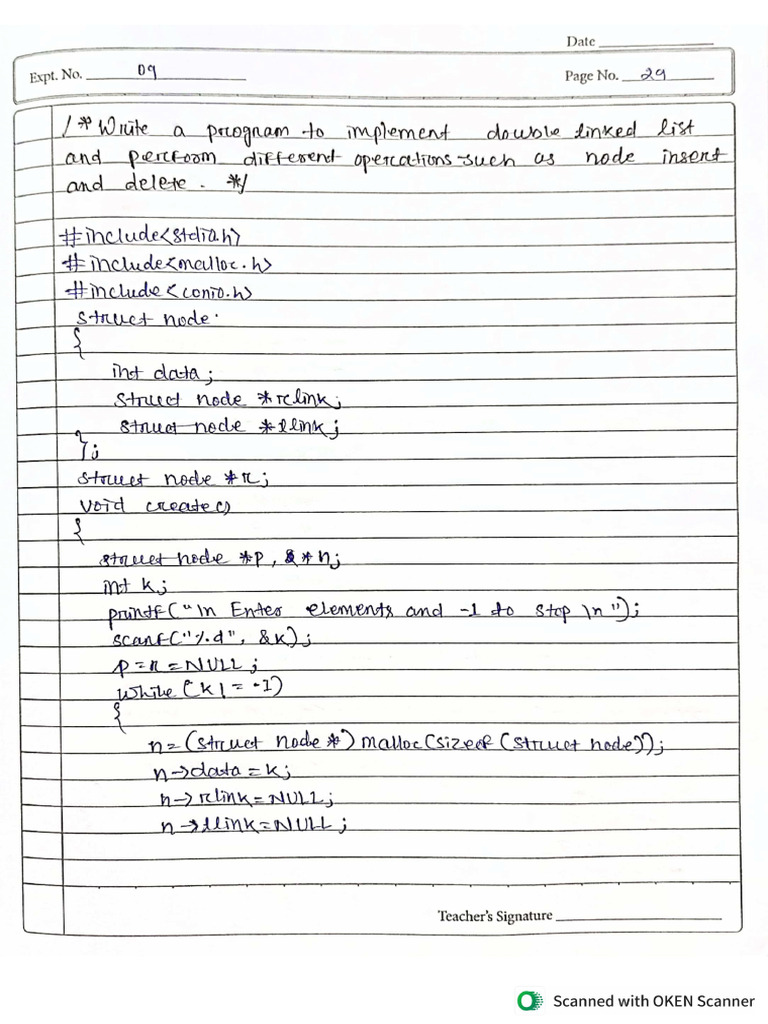 Date
Expt. No. 09
Page No. 29
/* Write a program to implement double linked list
and perform different operations such as node insert
and delete. */
#include<stdio.h>
#include<malloc.h>
#include<conio.h>
struct node
{
int data;
struct node *rlink;
struct node *llink;
};
struct node *r;
void create()
{
struct node *p, *n;
int k;
printf("\n Enter elements and -1 to stop \n");
scanf("%d", &k);
p=r=NULL;
while(k!=-1)
{
n=(struct node *)malloc(sizeof(struct node));
n->data=k;
n->rlink=NULL;
n->llink=NULL;
Teacher's Signature
Scanned with OKEN Scanner